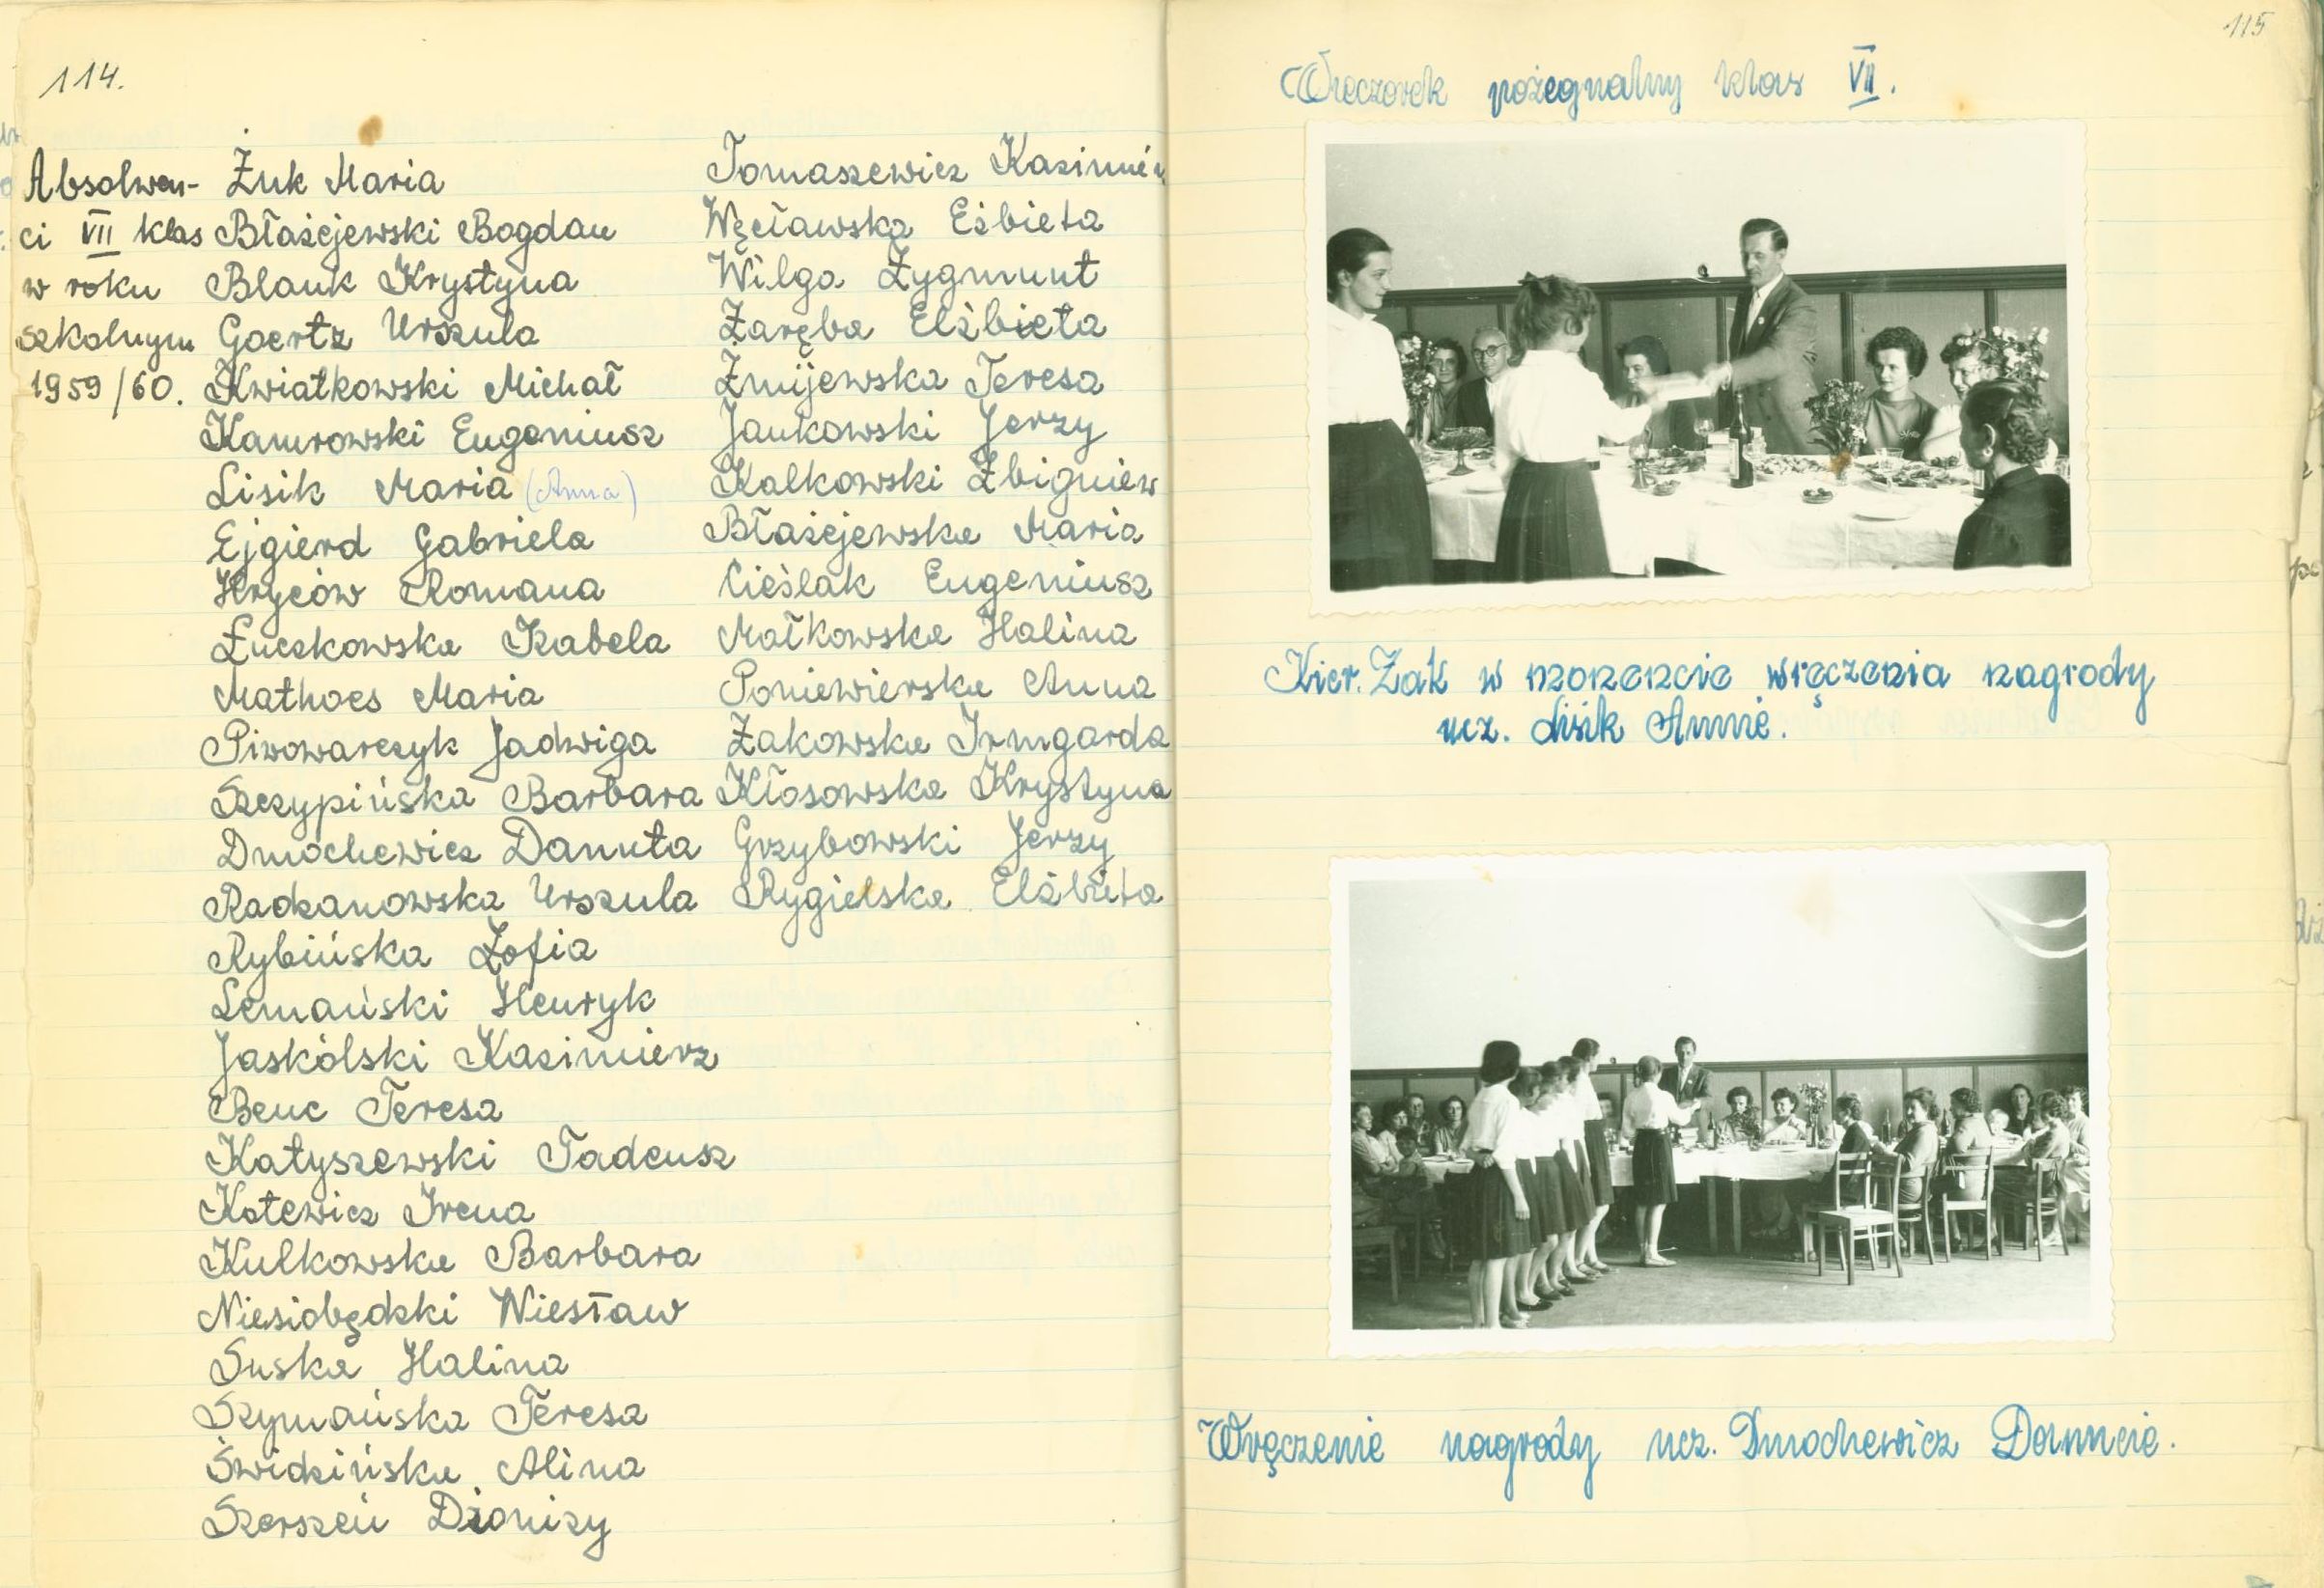 114.
Absolwen-
ci VII klas
w roku
szkolnym
1959/60.
Żuk Maria
Błażejewski Bogdan
Blank Krystyna
Goertz Urszula
Kwiatkowski Michał
Kamrowski Eugeniusz
Lisik Maria (Anna)
Ejgierd Gabriela
Hryców Romana
Łuczkowska Izabela
Mathoes Maria
Piwowarczyk Jadwiga
Szczypińska Barbara
Dmochewicz Danuta
Radzanowska Urszula
Rybińska Zofia
Lemański Henryk
Jaskólski Kazimierz
Benc Teresa
Katyszewski Tadeusz
Kotewicz Irena
Kulkowska Barbara
Niesiobędzki Wiesław
Suska Halina
Szymańska Teresa
Świdzińska Alina
Szerszeń Dionizy
Tomaszewicz Kazimie
Węcławska Elżbieta
Wilga Zygmunt
Zaręba Elżbieta
Żmijewska Teresa
Jankowski Jerzy
Kalkowski Zbigniew
Błażejewska Maria
Cieślak Eugeniusz
Małkowska Halina
Poniewierska Anna
Żakowska Irmgarda
Kłosowska Krystyna
Grzybowski Jerzy
Rygielska Elżbieta
115
Wieczorek pożegnalny klas VII.
Kier. Żak w momencie wręczenia nagrody
ucz. Lisik Annie.
Wręczenie nagrody ucz. Dmochewicz Danucie.